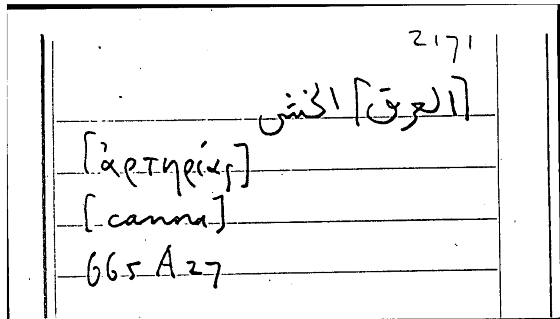 2171
[العرق] الخشن
[ἀρτηρίας]
[canna]
665 A 27